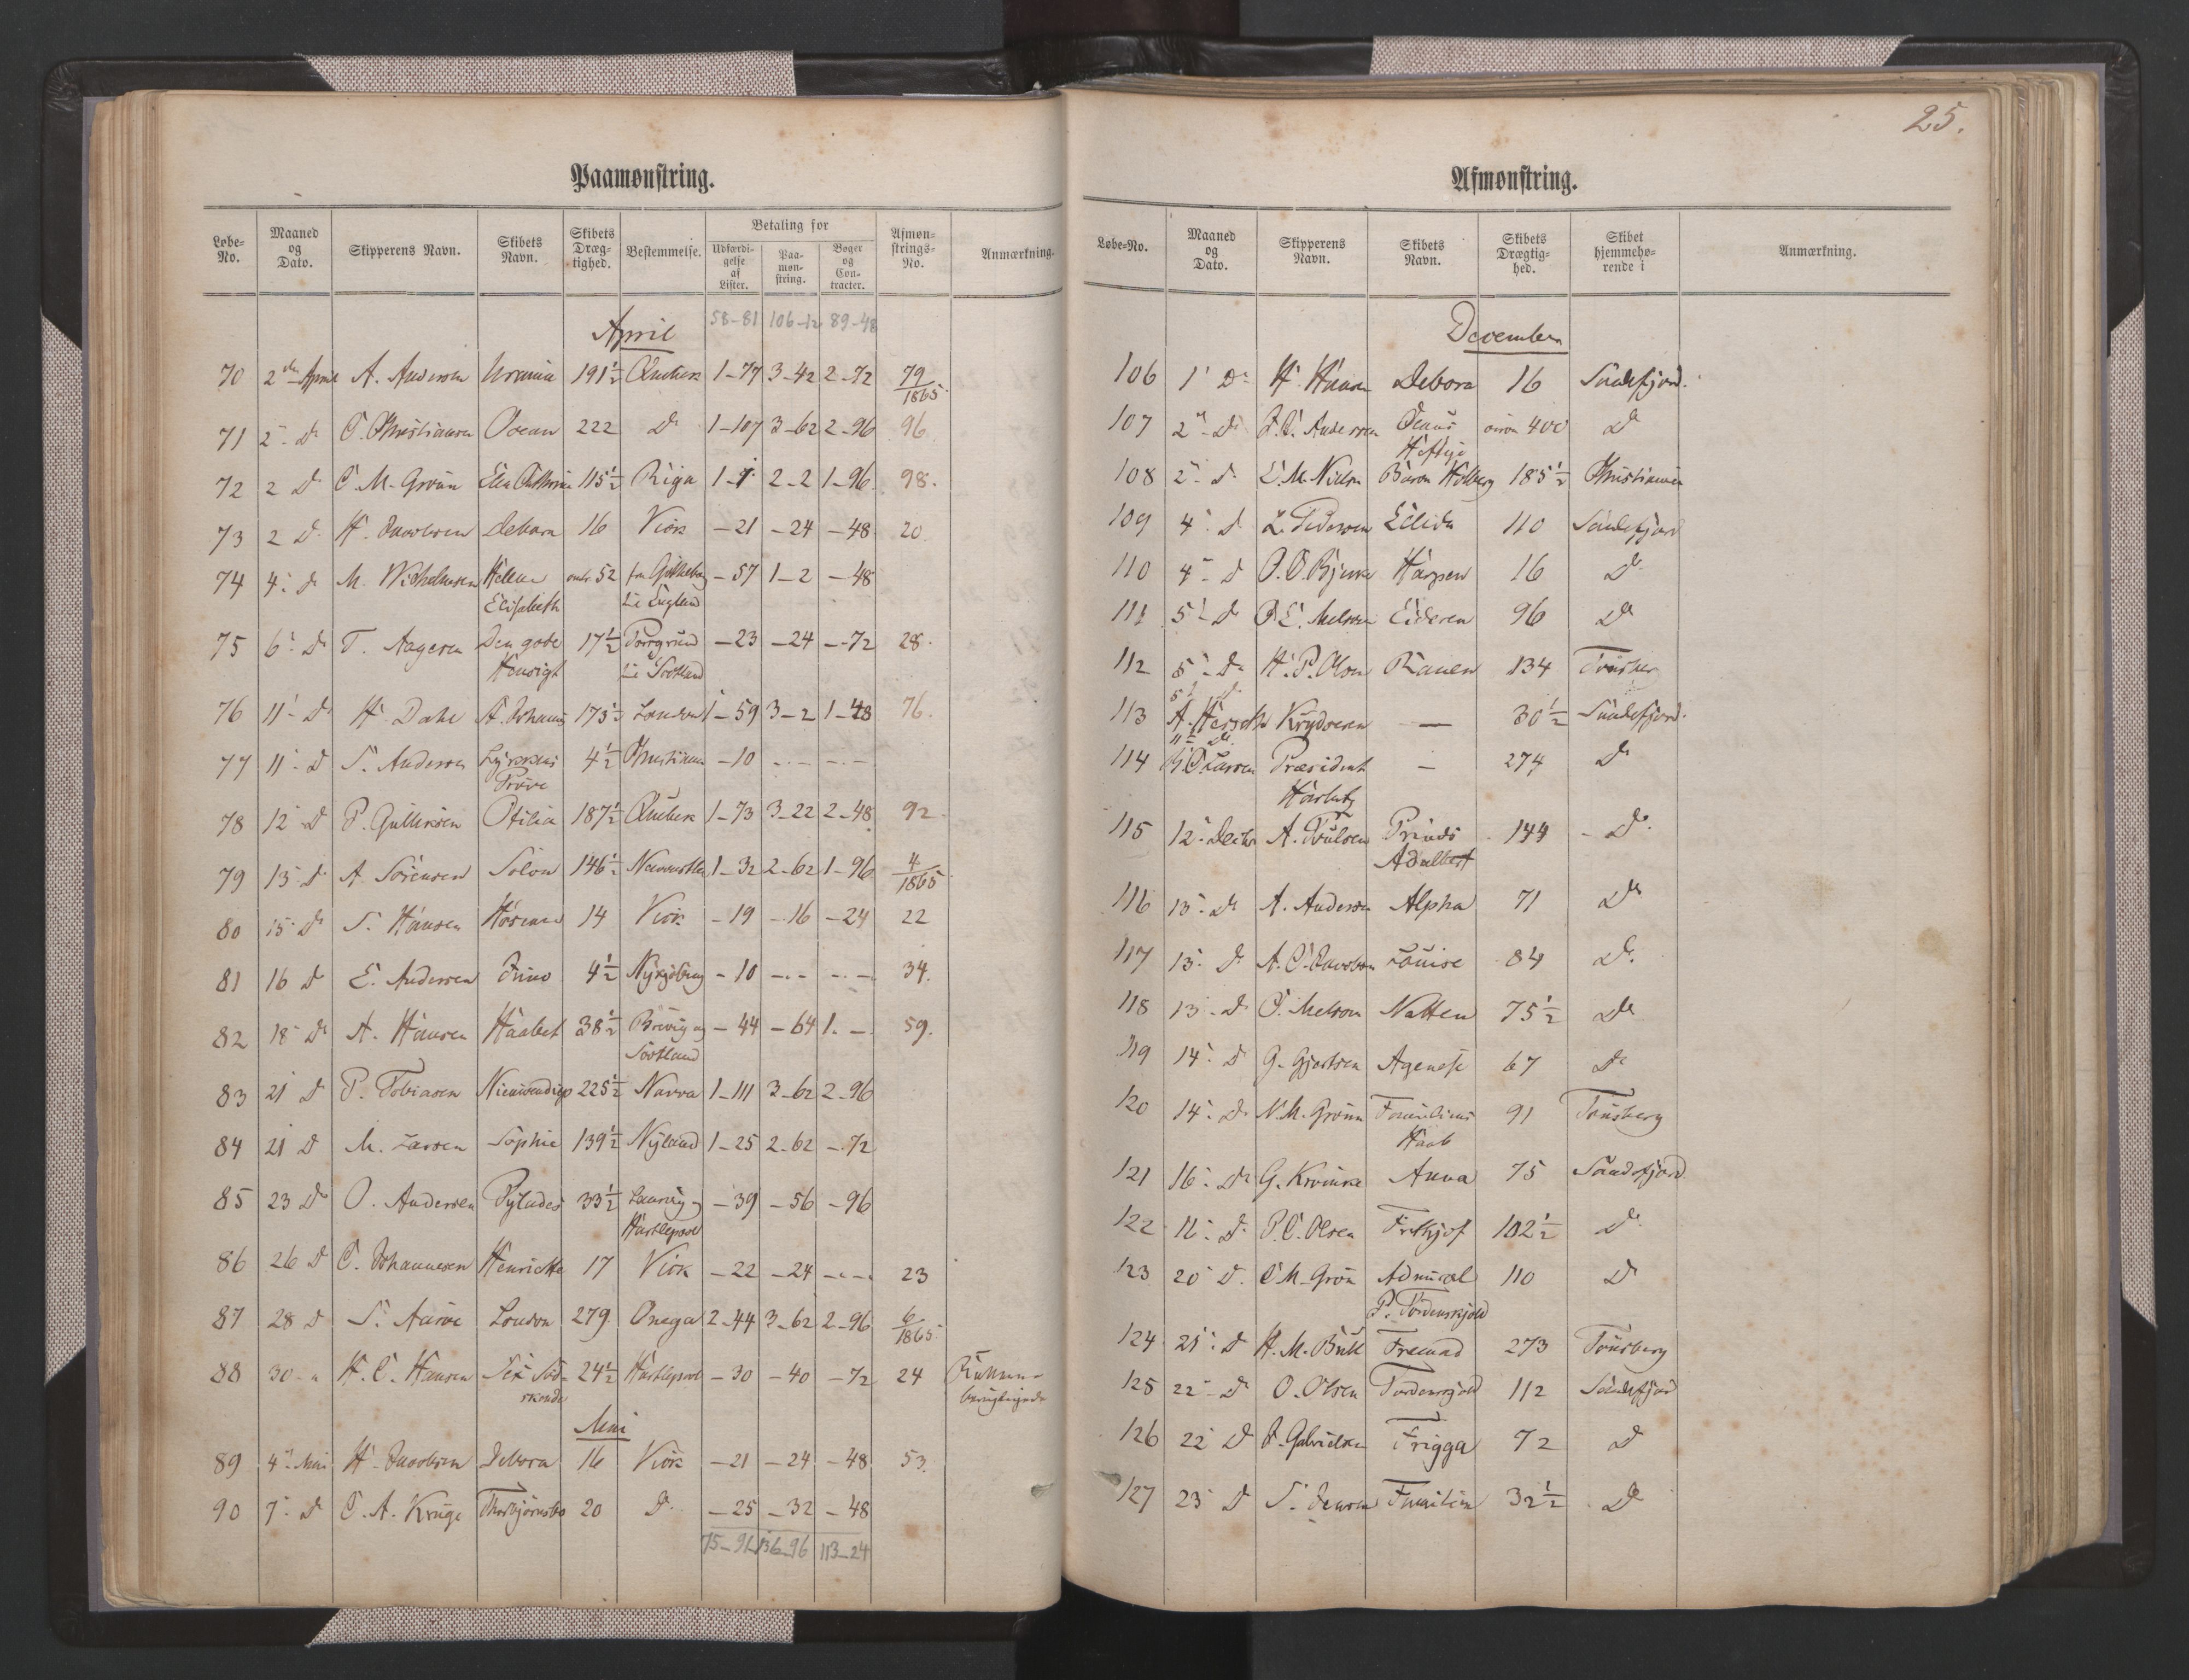 Paamønstring.
Løbe-No. Maaned og Dato. Skipperens Navn. Skibets Navn. Skibets Dræg-tighed. Bestemmelse. Betaling for Udfærdi-gelse af Lister. Paa-møn-string. Bøger og Con-tracter. Afmøn-strings-No. Anmærkning.
April 58-81 106-12 89-48
70 2den April A. Andersen Urania 191½ Quebek 1-77 3-42 2-72 79/1865
71 2 - do O. Christiansen Ocean 222 do 1-107 3-62 2-96 96
72 2 do C. M. Grönn 115½ Riga 2-2 1-96 98.
73 2 do H. Jacobsen Debora 16 Viök -21 -24 -48 20
74 4 - do M. Wilhelmsen Helene Elisabeth 52 fra Gøtheborg til England -57 1-2 -48
75 6 - do T. Aagesen Den gode Hensigt 17½ Porsgrund til Scotland -23 -24 -72 28.
76 11 - do H. Dahl 173½ London 1-59 3-2 1-48 76.
77 11 - do S. Andersen Lykkens Prøve 4½ Christiania -10 - - - -
78 12 - do P. Gulliksen Otilia 187½ Quebek 1-73 3-22 2-48 92
79 13 - do A. Sörensen Solon 146½ Newcastle 1-32 2-62 1-96 4/1865
80 15 - do S. Hansen 14 Viök -19 -16 -24 22
81 16 do E. Andersen Juno 4½ Nykjöbing -10 - - - - 34.
82 18 - do A. Hansen Haabet 38½ Brevig og Scotland -44 -64 1. - 59.
83 21 do P. Tobiasen Nieuwendiep 225½ Narva 1-111 3-62 2-96
84 21 do M. Larsen Sophie 139½ Nyland 1-25 2-62 -72
85 23 do O. Andersen Pylades 33½ Laurvig og Hartlepool -39 -56 -96
86 26 do C. Johannesen Henriette 17 Viök -22 -24 - - 23
87 28 do S. London 279 Onega 2-44 3-62 2-96 6/1865
88 30 - " H. C. Hansen Sex Söskende 24½ Hartlepool -30 -40 -72 24
Mai
89 4 - Mai H. Jacobsen Debora 16 Viök -21 -24 -48 53.
90 7 - do C. A. Kruge 20 do -25 -32 -48
75-96 136-96 113-24
25.
Afmønstring.
Løbe-No. Maaned og Dato. Skipperens Navn. Skibets Navn. Skibets Drægtig-hed. Skibet hjemmehø-rende i Anmærkning.
December
106 1 do H. Hansen Debora 16 Sandefjord.
107 2 - do Andersen Heftye 400 do
108 2 - do L. M. Nielsen Baron Holberg 185½ Christiania
109 4 - do L. Pedersen Ellida 110 Sandefjord
110 4 - do O. O. Bjerke Harpen 16 do
111 5 - do Melsom Eideren 96 do
112 5 - do H. P. Olsen Ranen 134 Tønsberg
113 5 - do A. Krydseren — 30½ Sandefjord.
114 11 - do Larsen Præsident Harbitz — 274 do
115 12 - Decbr A. Poulsen Prinds Adalbert 144 - do
116 13 - do A. Andersen Alpha 71 do
117 13 - do A. C. Jacobsen Louise 84 do
118 13 - do C. Melsom Natten 75½ do
119 14 - do G. Gjertsen Agenese 67 do
120 14 - do N. M. Grönn Familiens Haab 91 Tønsberg
121 16 - do G. Anna 75 Sandefjord
122 do P. C. Olsen Frithjof 102½ do
123 20 do C M Grön Admiral P. Tordenskjold 110 do
124 21 - do H. M. Bull Freunad 273 Tønsberg
125 22 - do O. Olsen Tordenskjold 112 Sandefjord
126 22 do Gabrielsen Frigga 72 do
127 23 do S. Jensen Familien 32½ do